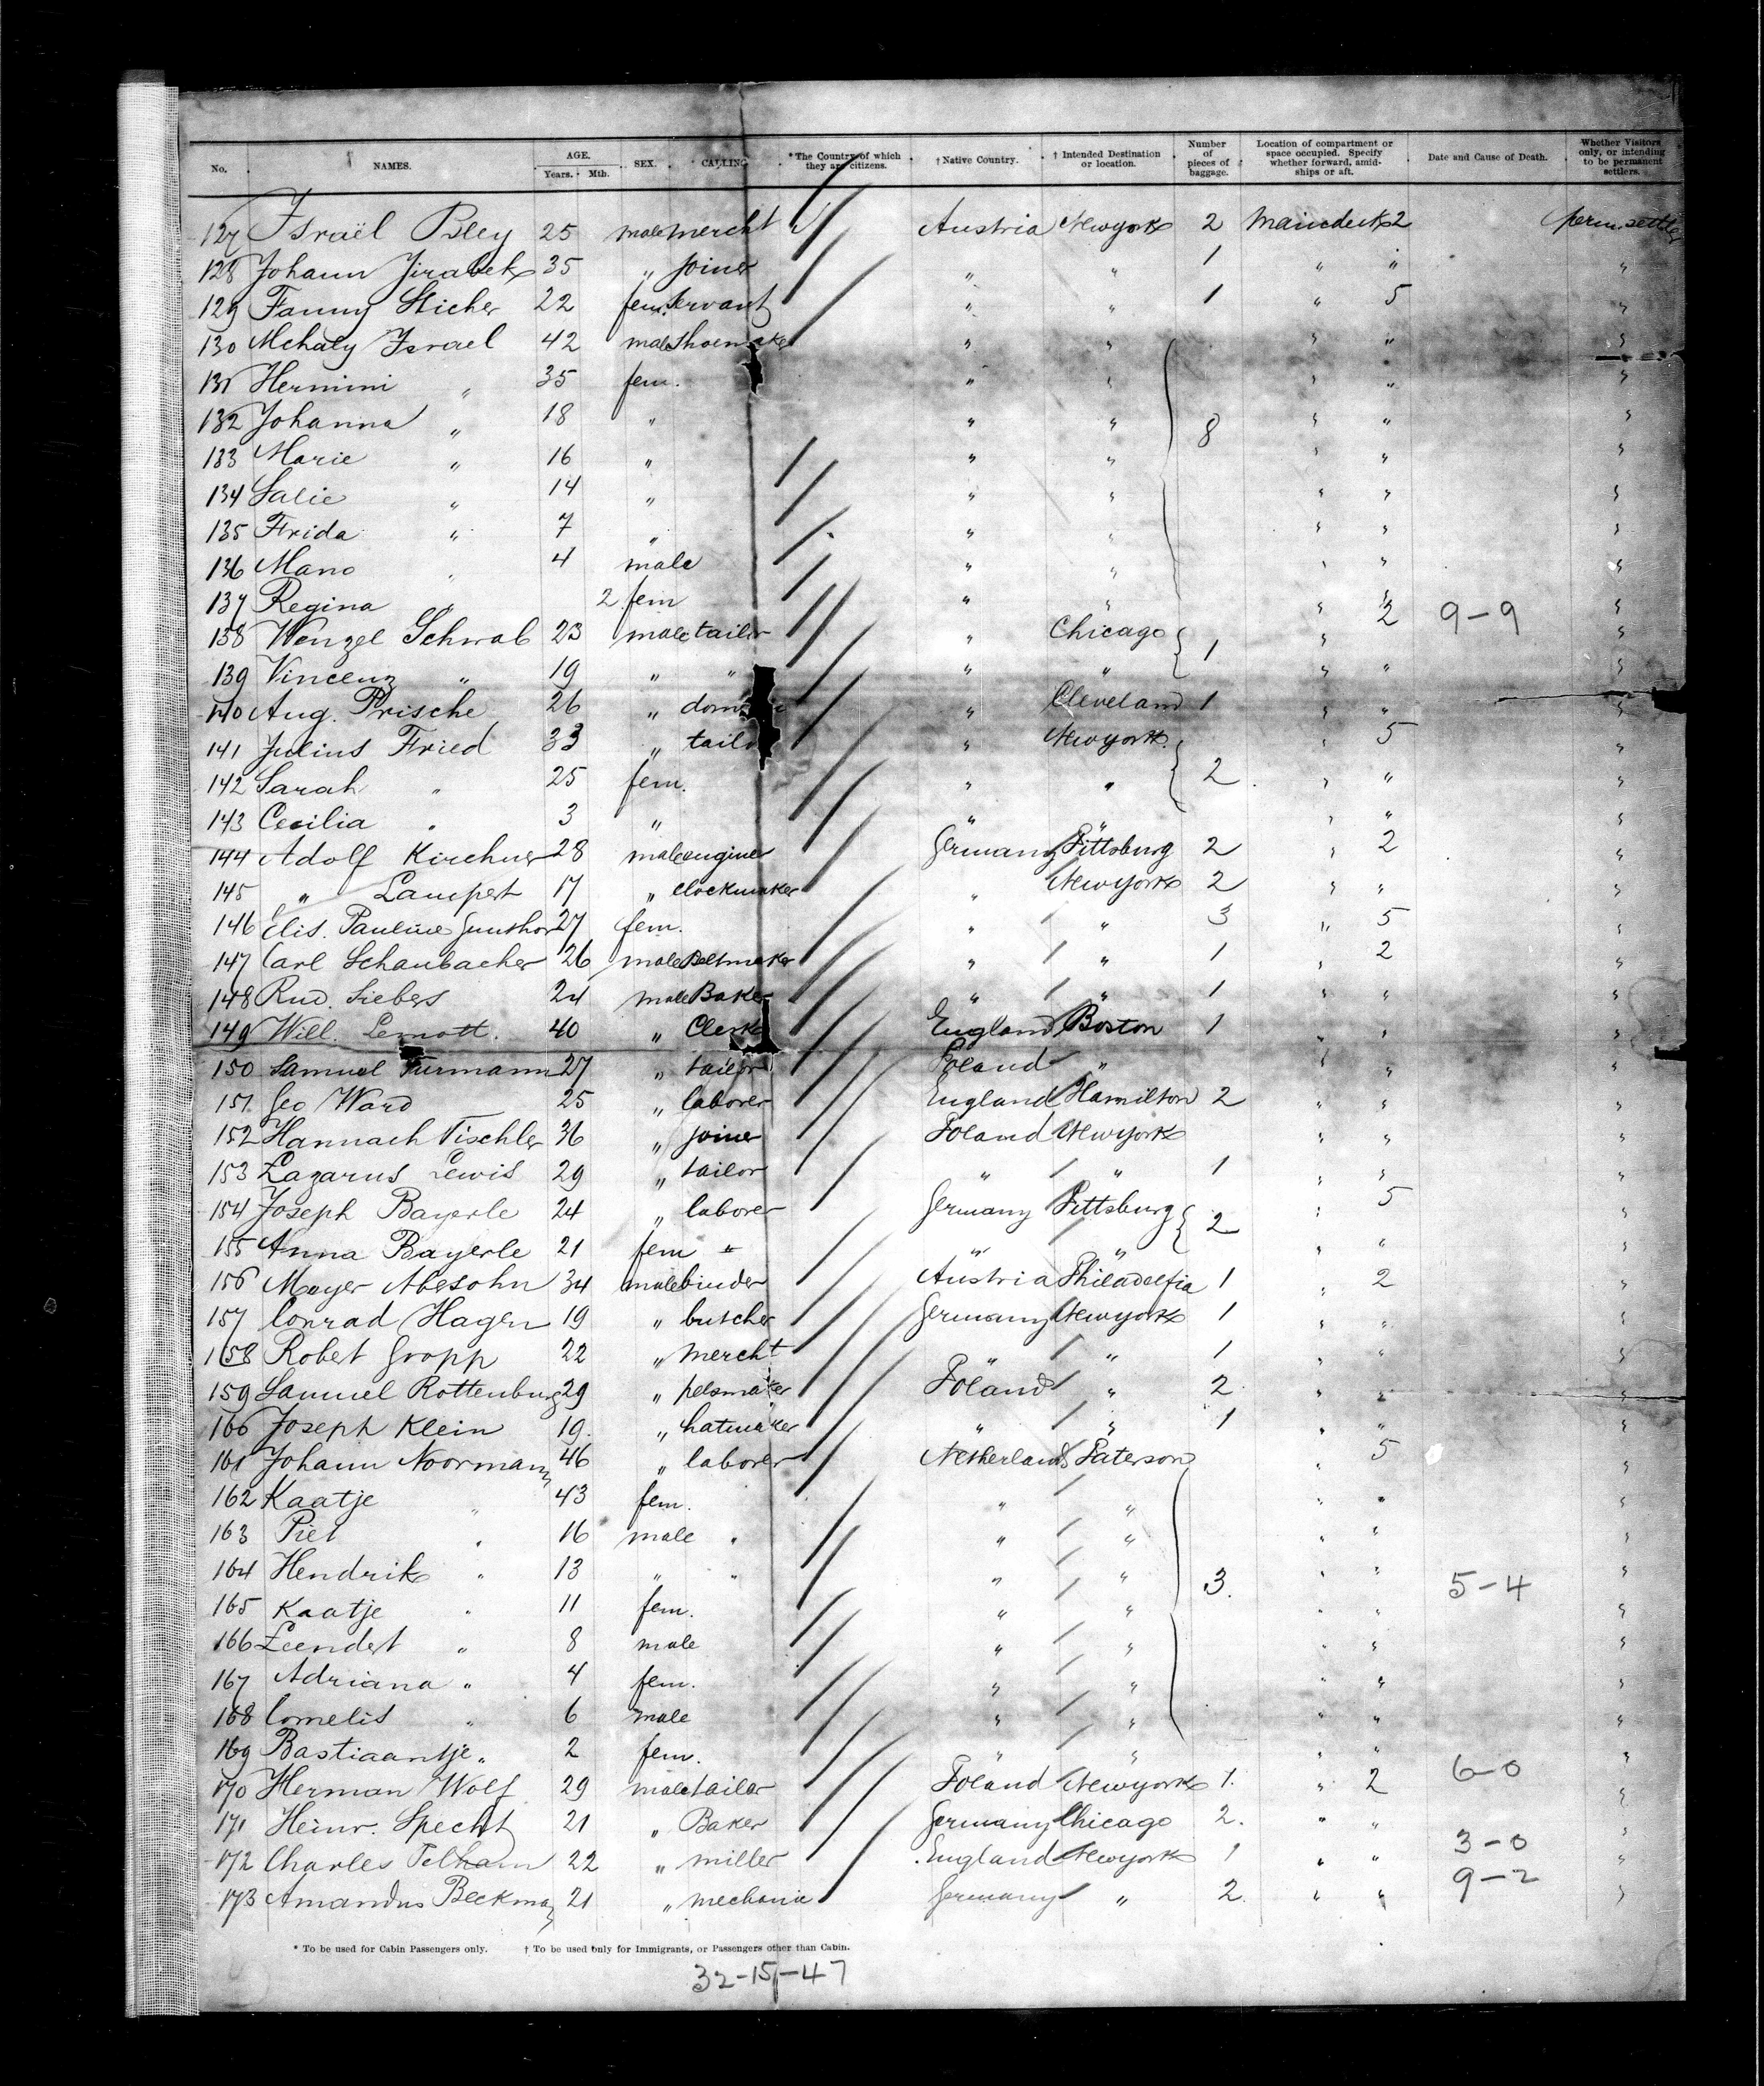 No. NAMES. AGE. Years. Mth. SEX. CALLING *The Country of which they are citizens. †Native Country. † Intended Destination or location. Number of pieces of baggage. Location of compartment or space occupied. Specify whether forward, amidships or aft. Date and Cause of Death. Whether Visitors only, or intending to be permanent settlers.
127 Israël Bley 25 male mercht Austria Newyork 2 Maindeck 2 perm. settler
128 Johann Jirabek 35 " joiner " " 1 " " "
129 Fanny Sticher 22 fem. servant " " 1 " 5 "
130 Mchaly Israel 42 male Shoemaker " " " " "
131 Hermini " 35 fem. " " " " "
132 Johanna " 18 " " " 8 " " "
133 Marie " 16 " " " " " "
134 Salie " 14 " " " " " "
135 Frida " 7 " " " " " "
136 Mano " 4 male " " " " "
137 Regina " 2 fem " " " " "
138 Wenzel Schwab 23 male tailor " Chicago 1 " 2 9-9 "
139 Vincenz " 19 " " " " " " "
140 Aug. Prische 26 " " Cleveland 1 " " "
141 Julius Fried 33 " tailor " Newyork " 5 "
142 Sarah " 25 fem. " " 2 " " "
143 Cecilia " 3 " " " " " "
144 Adolf Kirchner 28 male enginer Germany Pittsburg 2 " 2 "
145 " Lampert 17 " clockmaker " Newyork 2 " " "
146 Elis. Pauline Gunthor 27 fem. " " 3 " 5 "
147 Carl Schaubacher 26 male Beltmaker " " 1 " 2 "
148 Rud. Siebers 24 male Baker " " 1 " " "
149 Will. Lemott. 40 " Clerk England Boston 1 " " "
150 Samuel Furmann 27 " tailor Poland " " " "
151 Geo Ward 25 " laborer England Hamilton 2 " " "
152 Hannach Tischler 36 " joiner Poland Newyork " " "
153 Lazarus Lewis 29 " tailor " " 1 " " "
154 Joseph Bayerle 24 " laborer Germany Pittsburg 2 " 5 "
155 Anna Bayerle 21 fem " " " " " "
156 Mayer Abesohn 34 male binder Austria Philadelfia 1 " 2 "
157 Conrad Hagen 19 " butcher Germany Newyork 1 " " "
158 Robet Gropp 22 " mercht " " 1 " " "
159 Samuel Rottenburg 29 " pelsmaker Poland " 2 " " "
160 Joseph Klein 19. " hatmaker " " 1 " " "
161 Johann Noorman 46 " laborer Netherlands Paterson " 5 "
162 Kaatje " 43 fem. " " " " "
163 Piet " 16 male " " " " " "
164 Hendrik " 13 " " " " 3. " " 5-4 "
165 Kaatje " 11 fem. " " " " "
166 Leendert " 8 male " " " " "
167 Adriana " 4 fem. " " " " "
168 Cornelis " 6 male " " " " "
169 Bastiaantje " 2 fem. " " " " "
170 Herman Wolf 29 male tailor Poland Newyork 1. " 2 6-0 "
171 Heinr. Specht 21 " Baker Germany Chicago 2. " " "
172 Charles Pelham 22 " miller England Newyork 1 " " 3-0 "
173 Amandus Beckman 21 " mechanic Germany " 2. " " 9-2 "
* To be used for Cabin Passengers only. † To be used only for Immigrants, or Passengers other than Cabin.
32-15-47